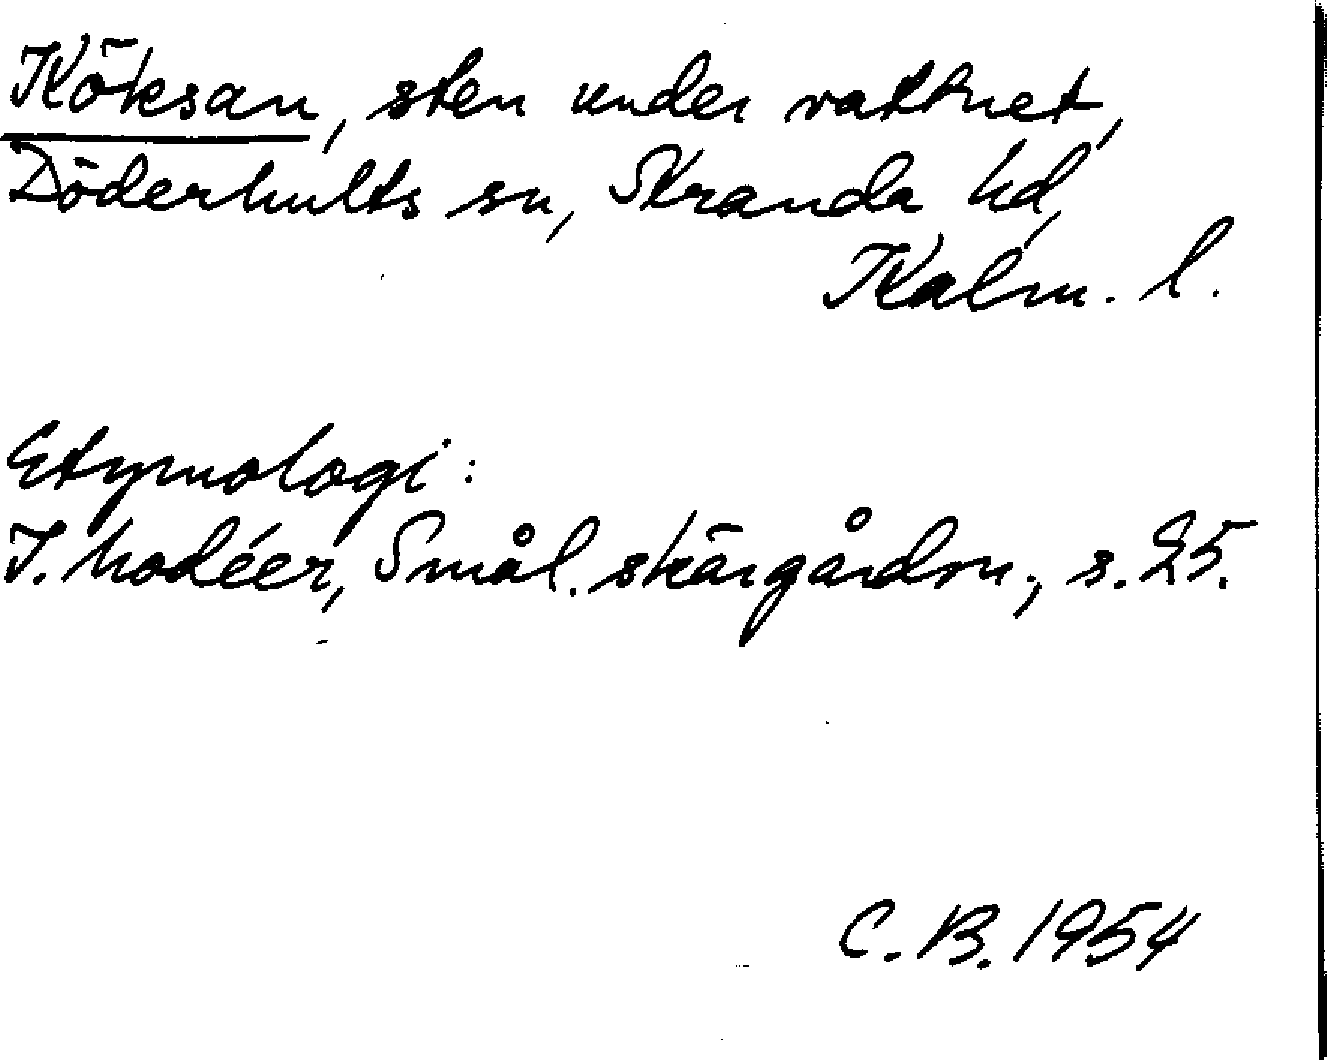 Köksan, sten under vattnet,
Döderhults sn, Stranda hd,
Kalm. l.
Etymologi:
I. Modéer, Smål. skärgårdsn., s. 25.
C. B. 1954